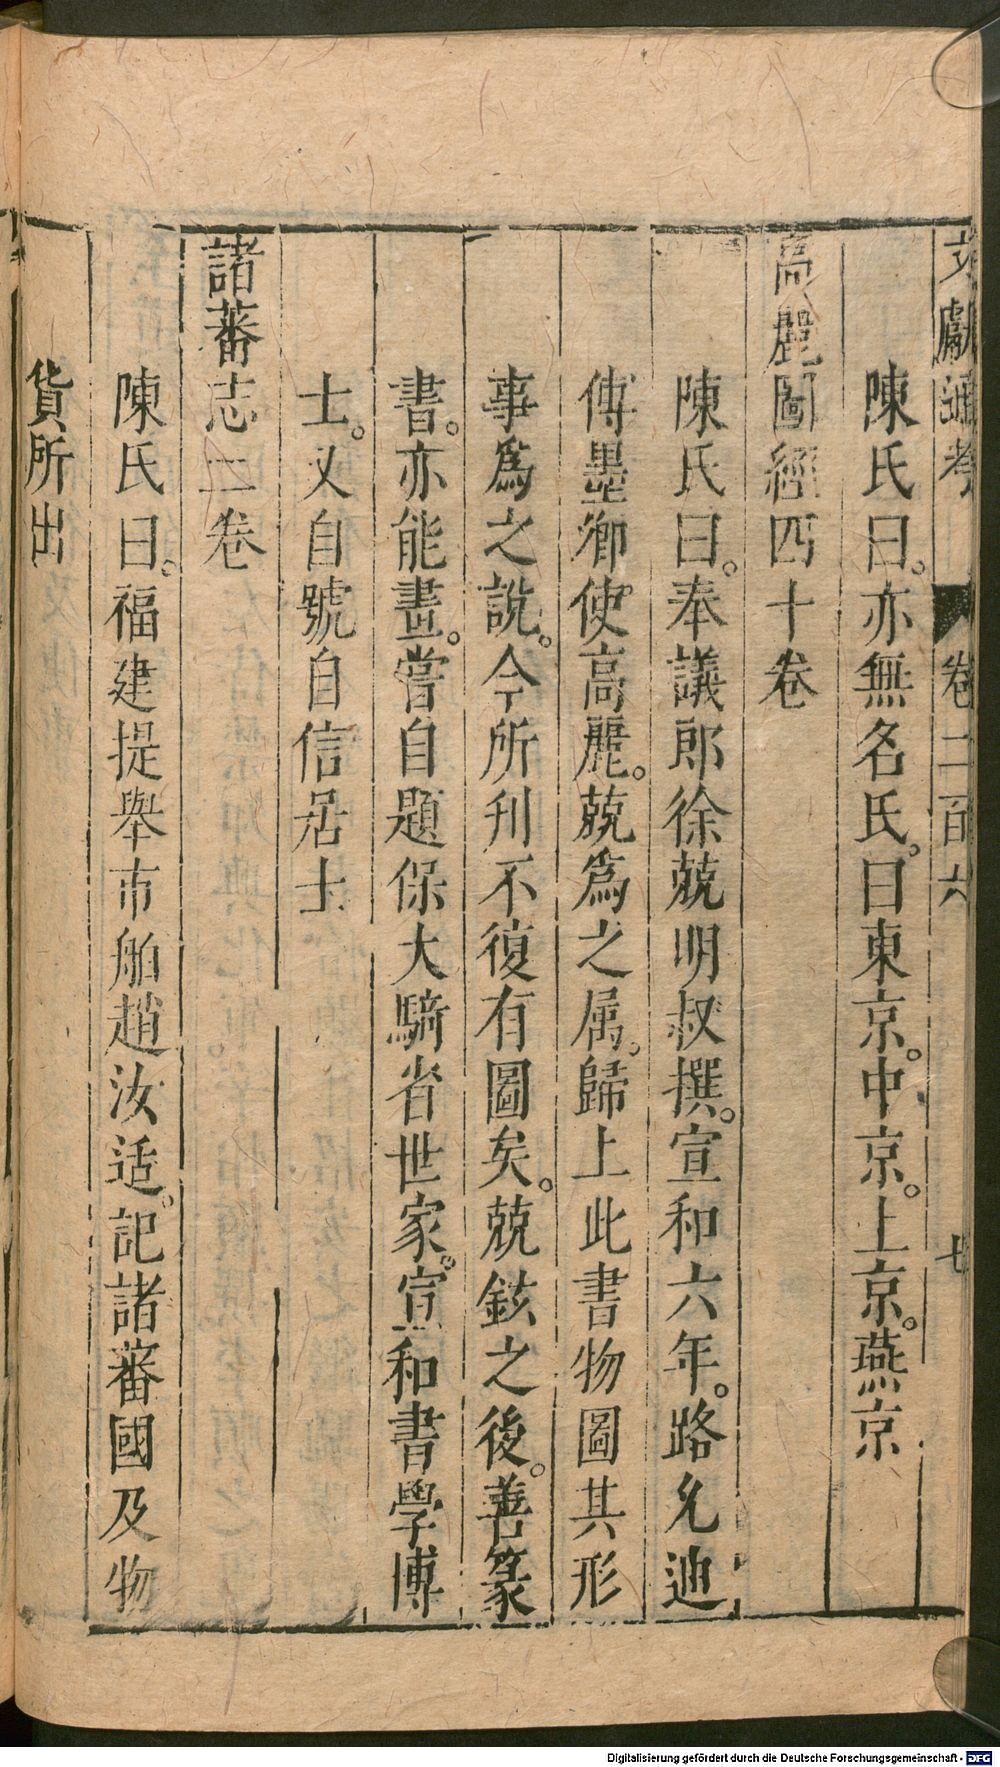 文獻通考 卷二百六 七
陳氏曰。亦無名氏。曰東京。中京。上京。燕京
高麗圖經四十卷
陳氏曰。奉議郎徐兢明叔撰。宣和六年。路允迪
傅墨卿。使高麗。兢爲之属。歸上此書物圖其形
事爲之說。今所刋不復有圖矣。兢鉉之後。善篆
書。亦能畫。嘗自題保大騎省世家。宣和書學博
士。又自號自信居士
諸蕃志二卷
陳氏曰。福建提舉市舶趙汝适。記諸蕃國及物
貨所出
Digitalisierung gefördert durch die Deutsche Forschungsgemeinschaft - DFG